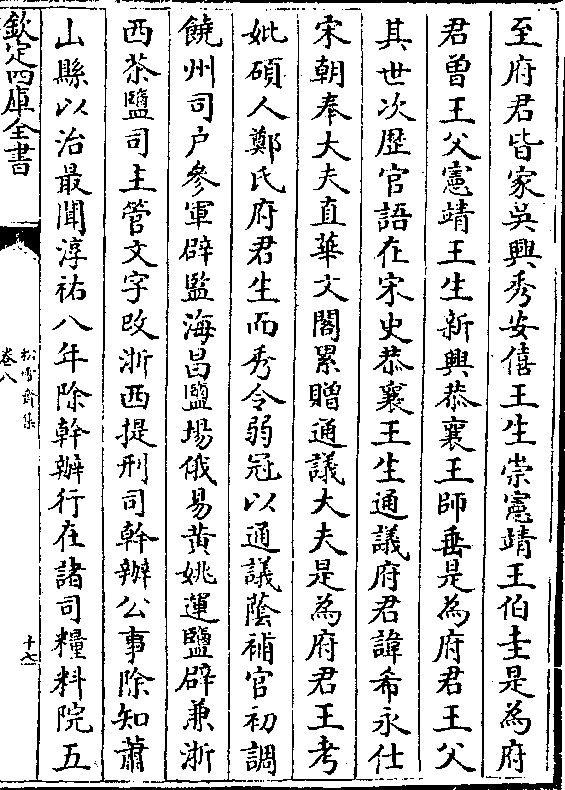 至府君皆家吳興秀安僖王生崇憲靖王伯圭是為府
君曾王父憲靖王生新興恭襄王師垂是為府君王父
其世次歴官語在宋史恭襄王生通議府君諱希永仕
宋朝奉大夫直華文閣累贈通議大夫是為府君王考
妣碩人鄭氏府君生而秀令弱冠以通議蔭補官初調
饒州司户參軍辟監海昌鹽場俄易黄姚運鹽辟兼浙
西茶鹽司主管文字改浙西提刑司幹辦公事除知蕭
山縣以治最聞淳祐八年除幹辦行在諸司糧料院五
欽定四庫全書
松雪齋集
卷八
十七